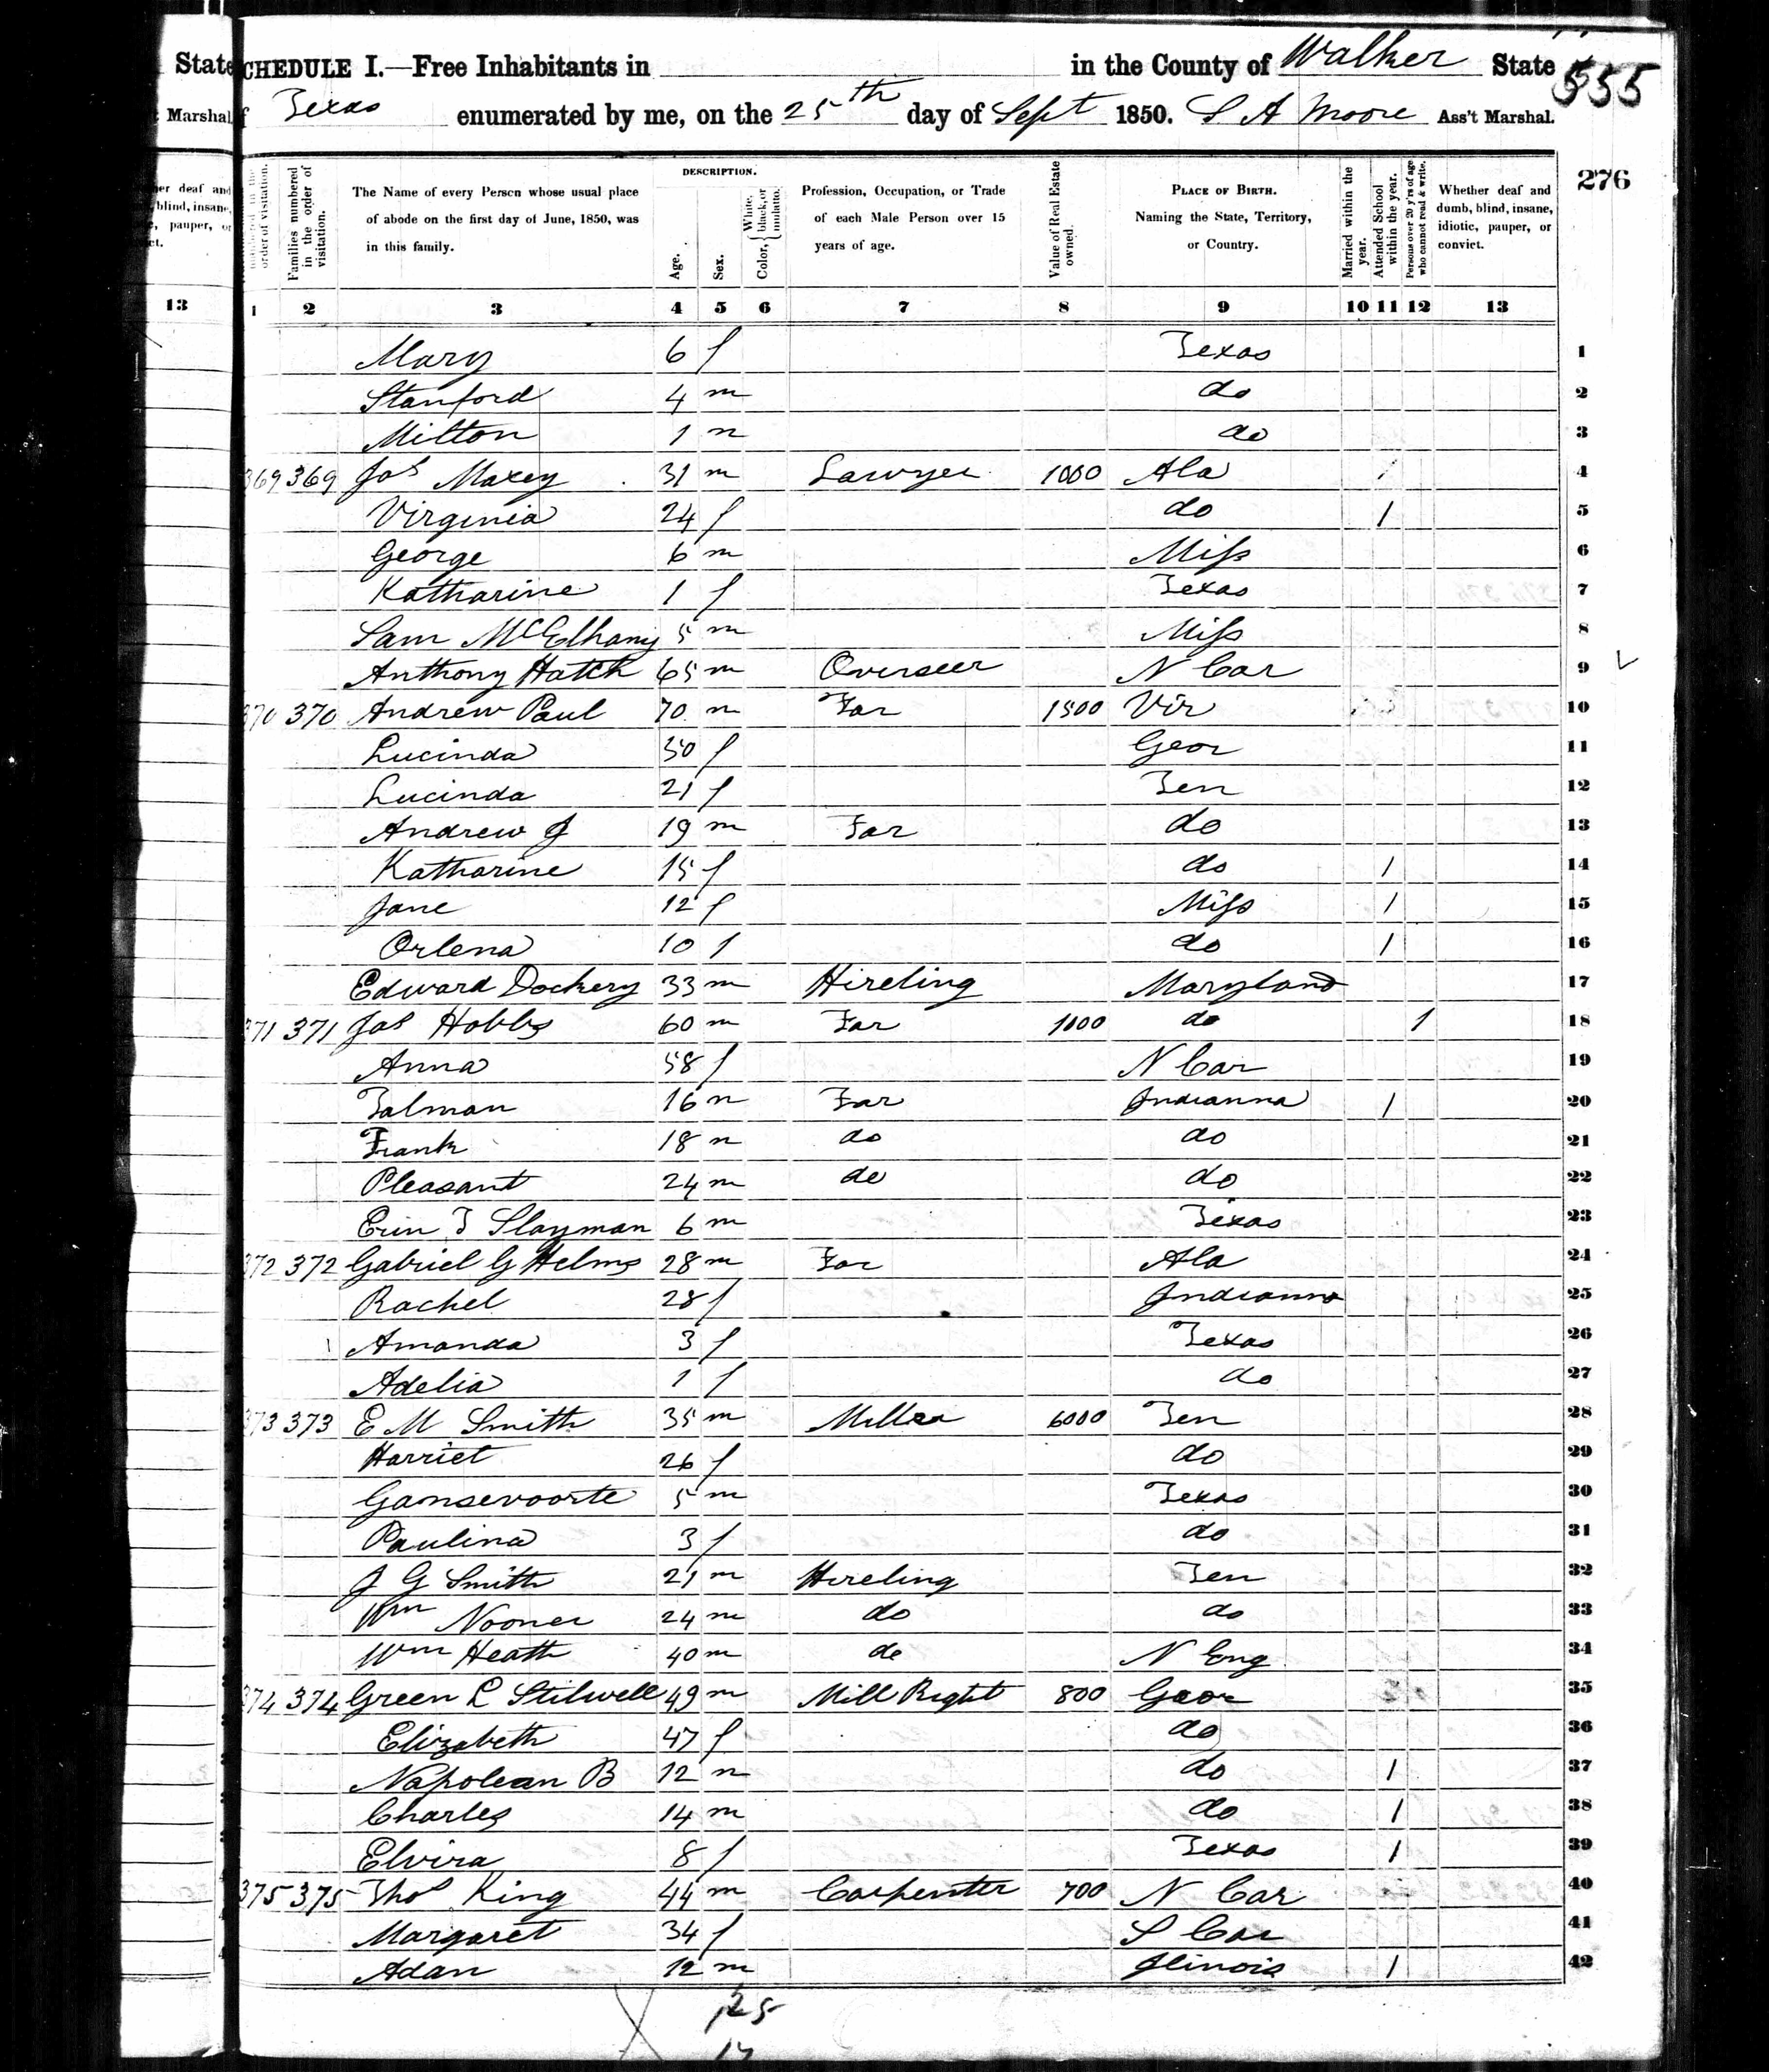 State SCHEDULE I.—Free Inhabitants in in the County of Walker State 555
Marshal. of Texas enumerated by me, on the 25th day of Sept 1850. S A Moore Ass't Marshal.
276
DESCRIPTION.
order of visitation.
Families numbered in the order of visitation.
The Name of every Person whose usual place of abode on the first day of June, 1850, was in this family.
Age.
Sex.
Color, White, black, or mulatto.
Profession, Occupation, or Trade of each Male Person over 15 years of age.
Value of Real Estate owned.
PLACE OF BIRTH. Naming the State, Territory, or Country.
Married within the year.
Attended School within the year.
Persons over 20 y'rs of age who cannot read & write.
Whether deaf and dumb, blind, insane, idiotic, pauper, or convict.
13 1 2 3 4 5 6 7 8 9 10 11 12 13
Mary 6 f Texas 1
Stanford 4 m do 2
Milton 1 m do 3
369 369 Jas Maxey 31 m Lawyer 1000 Ala 4
Virginia 24 f do 1 5
George 6 m Miss 6
Katharine 1 f Texas 7
Sam McElhany 5 m Miss 8
Anthony Hatch 65 m Overseer N Car 9
370 370 Andrew Paul 70 m Far 1500 Vir 10
Lucinda 50 f Geor 11
Lucinda 21 f Ten 12
Andrew J 19 m Far do 13
Katharine 15 f do 1 14
Jane 12 f Miss 1 15
Orlena 10 f do 1 16
Edward Dockery 33 m Hireling Maryland 17
371 371 Jas Hobbs 60 m Far 1000 do 1 18
Anna 58 f N Car 19
Talman 16 m Far Indianna 1 20
Frank 18 m do do 21
Pleasant 24 m do do 22
Erin T Slayman 6 m Texas 23
372 372 Gabriel G Helms 28 m Far Ala 24
Rachel 28 f Indianna 25
Amanda 3 f Texas 26
Adelia 1 f do 27
373 373 E M Smith 35 m Miller 6000 Ten 28
Harriet 26 f do 29
Gansevoorte 5 m Texas 30
Paulina 3 f do 31
J G Smith 21 m Hireling Ten 32
Wm Nooner 24 m do do 33
Wm Heath 40 m do N Eng 34
374 374 Green L Stilwell 49 m Mill Right 800 Geor 35
Elizabeth 47 f do 36
Napolean B 12 m do 1 37
Charles 14 m do 1 38
Elvira 8 f Texas 1 39
375 375 Thos King 44 m Carpenter 700 N Car 40
Margaret 34 f S Car 41
Adan 12 m Ilinois 1 42
25
17